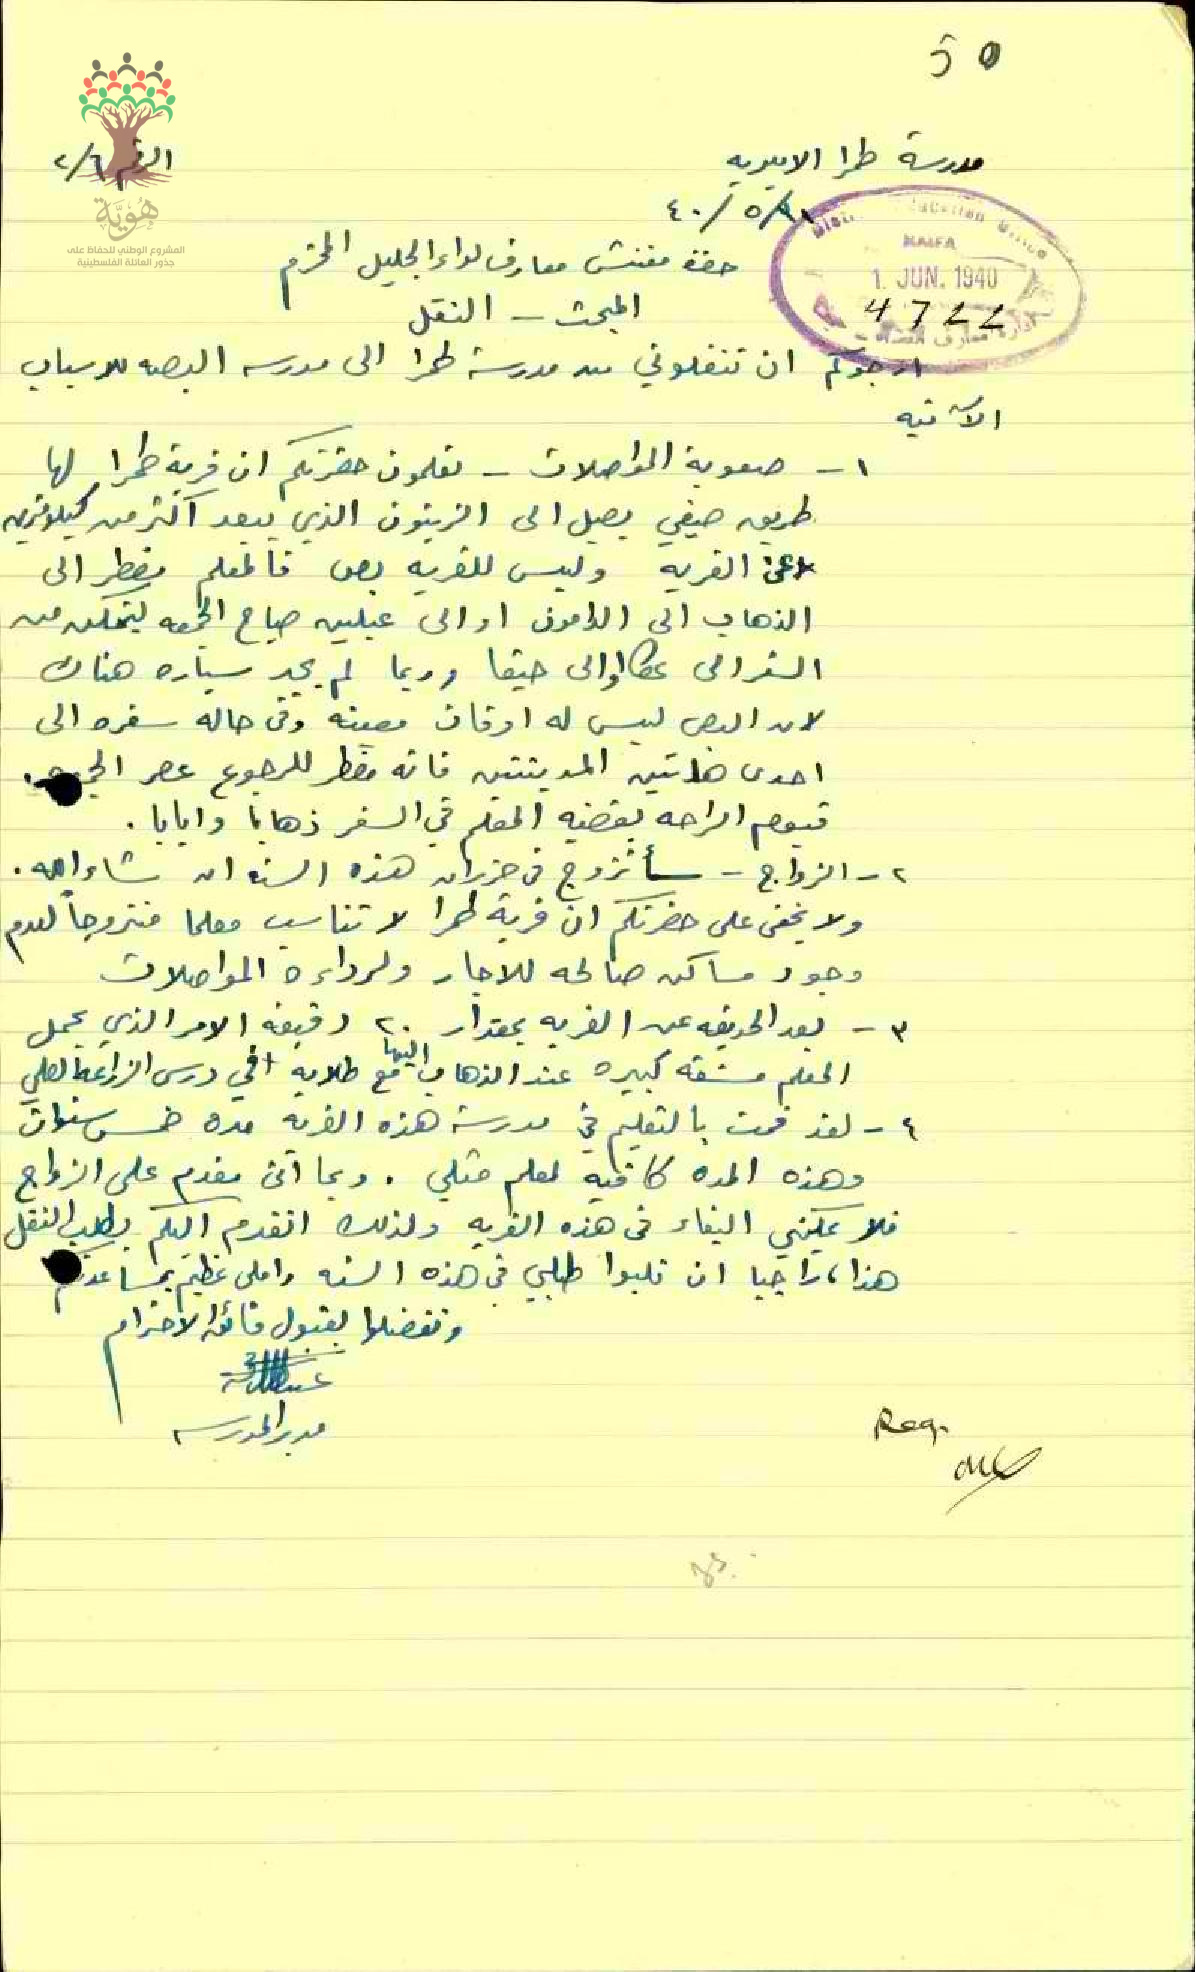 50
مدرسة طمرا الاميريه
الرقم ٢/٦
٤٠/٥/
هُوِيَّة
المشروع الوطني للحفاظ على
جذور العائلة الفلسطينية
District Education Office
HAIFA
1 JUN. 1940
4722
حضرة مفتش معارف لواء الجليل المحترم
المبحث - النقل
ارجوكم ان تنقلوني من مدرسة طمرا الى مدرسه البصه للاسباب
الآتيه
١- صعوبة المواصلات - تعلمون حضرتكم ان قرية طمرا لها
طريق صيفي يصل الى الزيتون الذي يبعد اكثر من كيلومترين
عن القريه وليس للقريه بص فالمعلم مضطر الى
الذهاب الى الدامون او الى عبلين صباح الجمعه ليتمكن من
السفر الى عكا او الى حيفا وربما لم يجد سياره هناك
لان البص ليس له اوقات معينه وفي حاله سفره الى
احدى هاتين المدينتين فانه مضطر للرجوع عصر
فيوم الراحه يقضيه المعلم في السفر ذهابا وايابا.
٢- الزواج - سأتزوج في حزيران هذه السنه ان شاء الله.
ولا يخفى على حضرتكم ان قرية طمرا لا تناسب معلما متزوجاً لعدم
وجود مساكن صالحه للاجار ولرداءة المواصلات
٣- بعد الحديقه عن القريه بمقدار ٢٠ دقيقه الامر الذي يحمل
المعلم مشقه كبيره عند الذهاب اليها مع طلابه في درس الزراعة العملي
٤- لقد قمت بالتعليم في مدرسة هذه القريه مدة خمس سنوات
وهذه المده كافية لمعلم مثلي. وبما انني مقدم على الزواج
فلا يمكنني البقاء في هذه القريه ولذلك اتقدم اليكم بطلب النقل
هذا، راجيا ان تلبوا طلبي في هذه السنه واملي عظيم بمساعدتكم
وتفضلوا بقبول فائق الاحترام
مدير المدرسه
Reg.